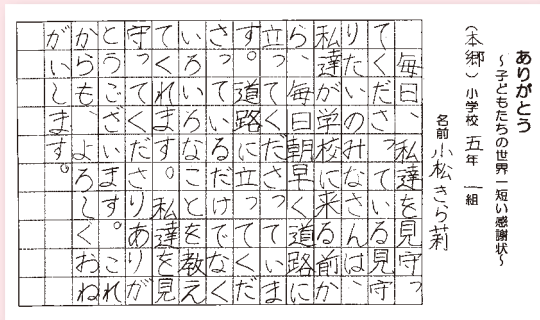 ありがとう
〜子どもたちの世界一短い感謝状〜
（本郷）小学校 五年 一組
名前 小松きら莉
毎日、私達を見守っ
てくださっている見守
りたいのみなさんは、
私達が学校に来る前か
ら、毎日朝早く道路に
立ってくださっていま
す。道路に立ってくだ
さっているだけでなく
いろいろなことを教え
てくれます。私達を見
守ってくださりありが
とうございます。これ
からも、よろしくおね
がいします。